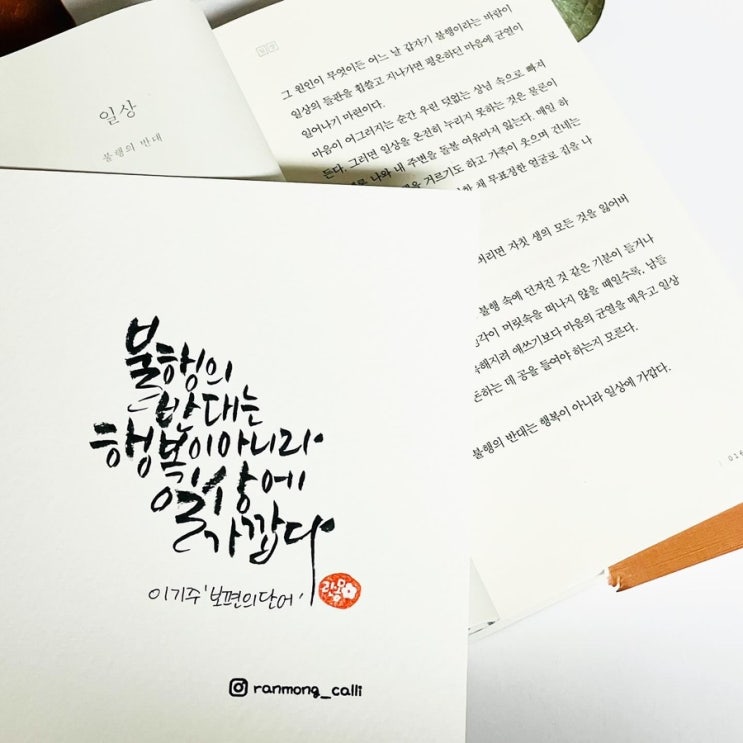 일상
불행의 반대
그 원인이 무엇이든 어느 날 갑자기 불행이라는 바람이
일상의 들판을 휩쓸고 지나가면 평온하던 마음에 균열이
일어나기 마련이다.
마음이 어그러지는 순간 우린 덧없는 상념 속으로 빠져
든다. 그러면 일상을 온전히 누리지 못하는 것은 물론이
나와 내 주변을 돌볼 여유마저 잃는다. 매일 하
거르기도 하고 가족이 웃으며 건네는
채 무표정한 얼굴로 집을 나
자칫 생의 모든 것을 잃어버
불행 속에 던져진 것 같은 기분이 들거나
머릿속을 떠나지 않을 때일수록, 남들
애쓰기보다 마음의 균열을 메우고 일상
하는 데 공을 들여야 하는지 모른다.
불행의 반대는 행복이 아니라 일상에 가깝다.
불행의
반대는
행복이 아니라
일상에
가깝다
이기주 '보편의 단어'
란몽
ranmong_calli